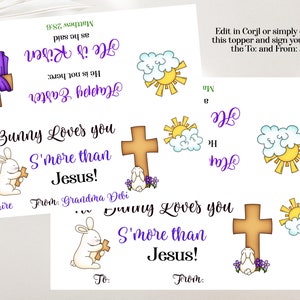 Edit in Corjl or simply
this topper and sign you
the To: and From:
Matthew 28:6
as he said
He is Risen
He is not here;
Happy Easter
Bunny Loves you
S'more than
Jesus!
From: Grandma Debi
Bunny Loves you
S'more than
Jesus!
To:
From: